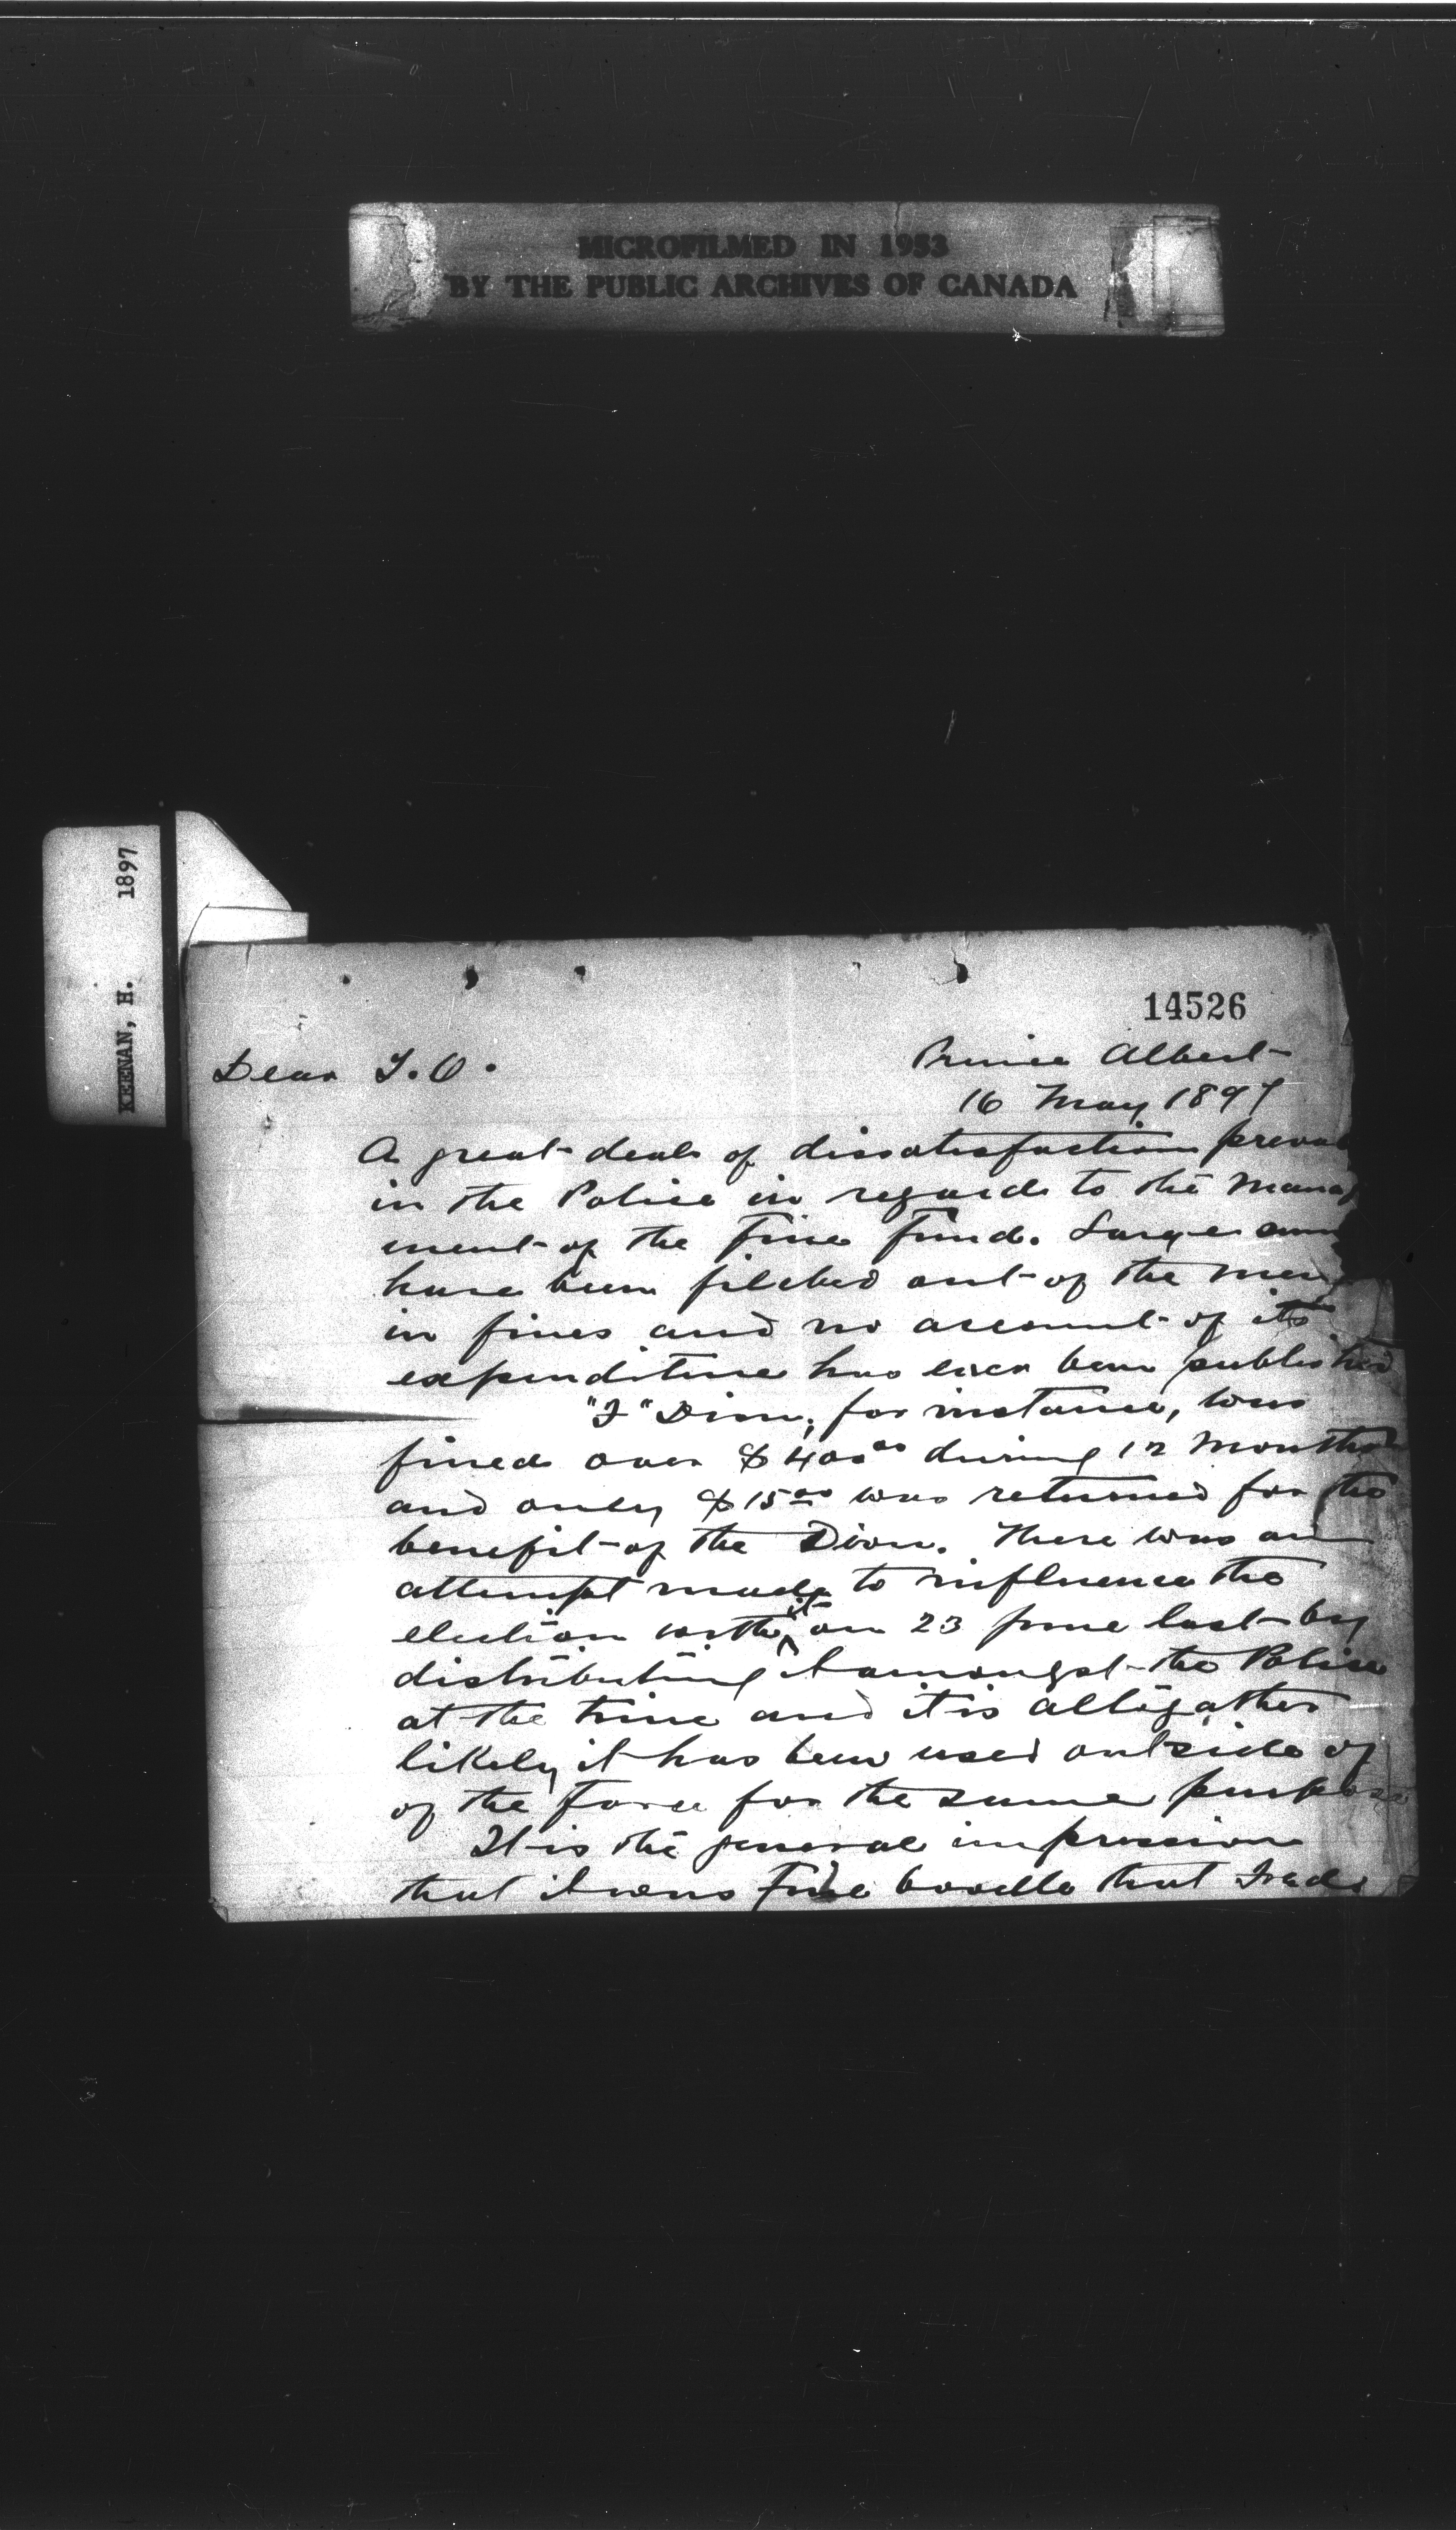 MICROFILMED IN 1953
BY THE PUBLIC ARCHIVES OF CANADA
KEENAN, H. 1897
14526
Prince Albert
16 May 1897
Dear T.O.
A great deal of dissatisfaction
in the Police in regard to the
ment of the Fine Fund. Large
have been filched out of the men
in fines and no account of its
expenditure has ever been published
"F" Divn, for instance, was
fined over $400 00 during 12 months
and only $15 00 was returned for the
benefit of the Divn. There was an
attempt made to influence the
election with it on 23 June last by
distributing it amongst the Police
at the time and it is altogather
likely it has been used outside of
of the Force for the same purpose
It is the general impression
that it was Fine boodle that